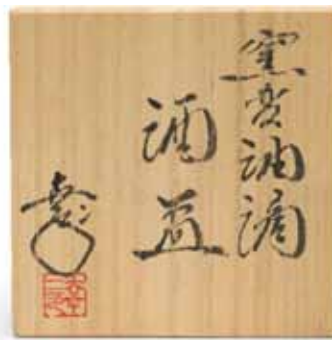 窯変油滴
酒盃